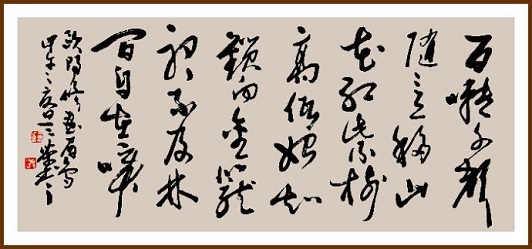 百囀千聲
隨意移山
花紅紫樹
高低始知
鎖向金籠
聽不及林
間自在啼
歐陽修畫眉鳥
甲午之夏